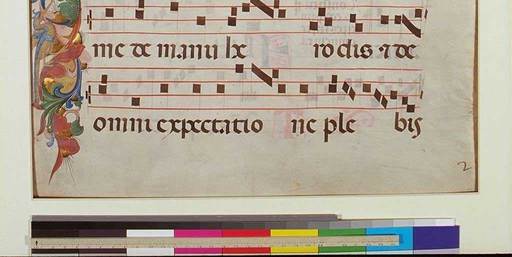 me de manu he rodis ⁊ de
omni expectatio ne ple bis
2